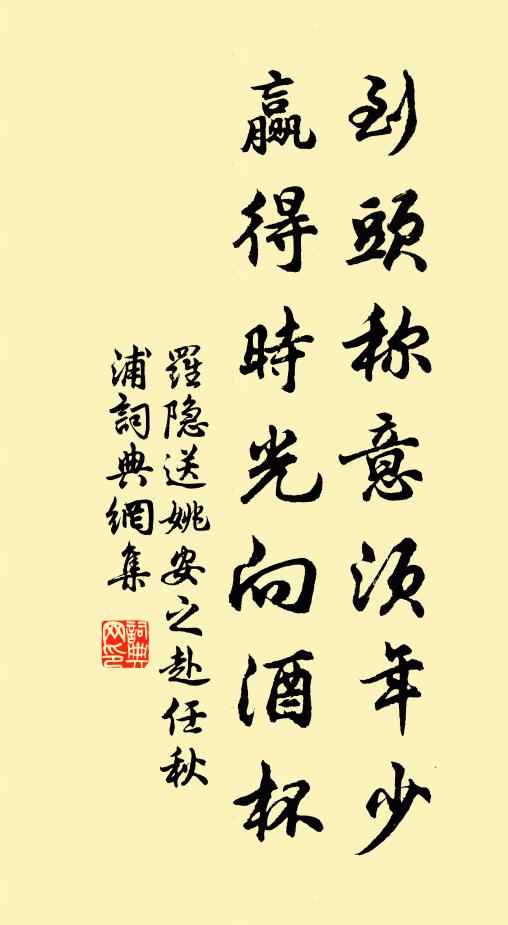 到頭称意須年少
贏得時光向酒杯
羅隐送姚安之赴任秋
浦詞典網集
詞典
网印